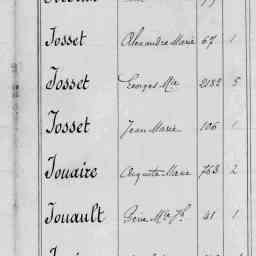 Josset Alexandre Marie 67 1
Josset Georges Mie 2182 5
Josset Jean Marie 106 1
Jouaire Auguste Marie 763 2
Jouault 41 1